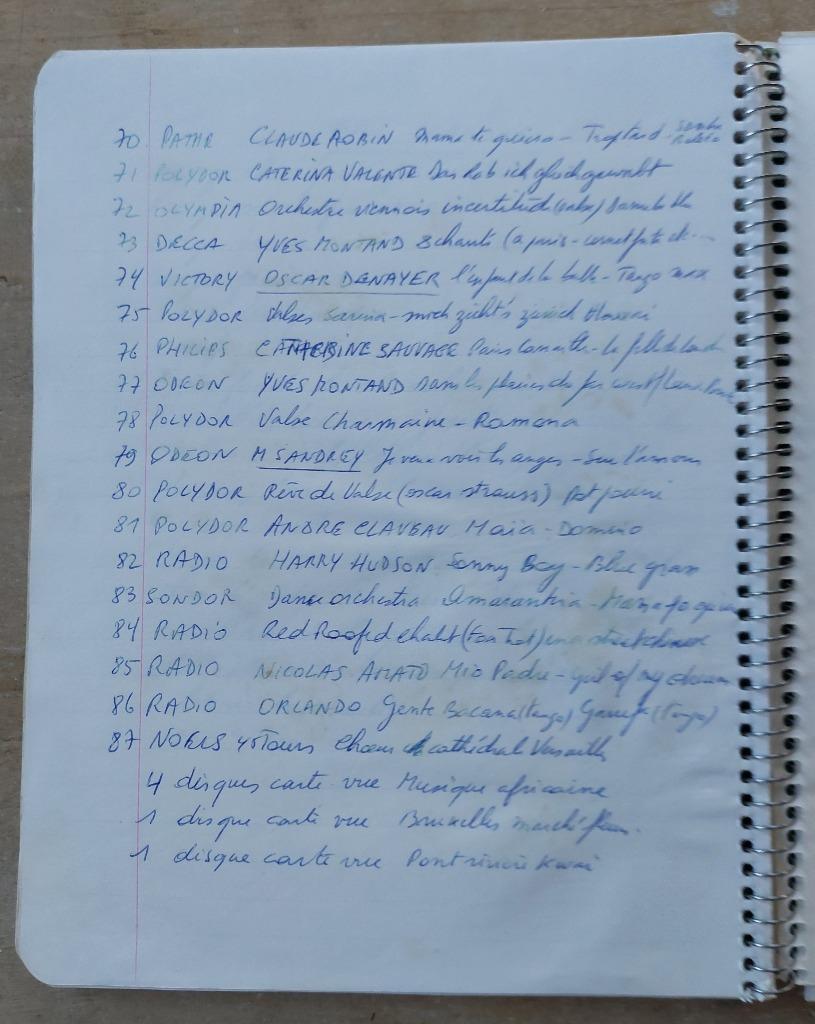 70 PATHE CLAUDE ROBIN Mama te quiero - Trop tard - Samba
71 POLYDOR CATERINA VALENTE Das hab ich gleich gewusst
72 OLYMPIA Orchestre viennois incertitude (valse)
73 DECCA YVES MONTAND 8 chants (a paris -
74 VICTORY OSCAR DENAYER l'enfant de la balle - Tango max
75 POLYDOR Valses - mich zieht's zurück Hawaii
76 PHILIPS CATHERINE SAUVAGE Paris canaille - la fille de Londres
77 ODEON YVES MONTAND Dans les plaines du far west /
78 POLYDOR Valse Charmaine - Ramona
79 ODEON M SANDREY Je veux voir les anges - Seul l'amour
80 POLYDOR Rêve de Valse (oscar strauss) Pot pourri
81 POLYDOR ANDRE CLAVEAU Maïa - Domino
82 RADIO HARRY HUDSON Sonny Boy - Blue grass
83 SONDOR Dance orchestra Amarantina - Mama yo quiero
84 RADIO Red Roofed chalet (fox trot) in a street
85 RADIO NICOLAS AMATO Mio Padre - girl of my dream
86 RADIO ORLANDO Gente Bacana (tango) Garufa (Tango)
87 NOELS 45 Tours Choeur cathédral Versailles
4 disques carte vue Musique africaine
1 disque carte vue Bruxelles marché
1 disque carte vue Pont rivière Kwai